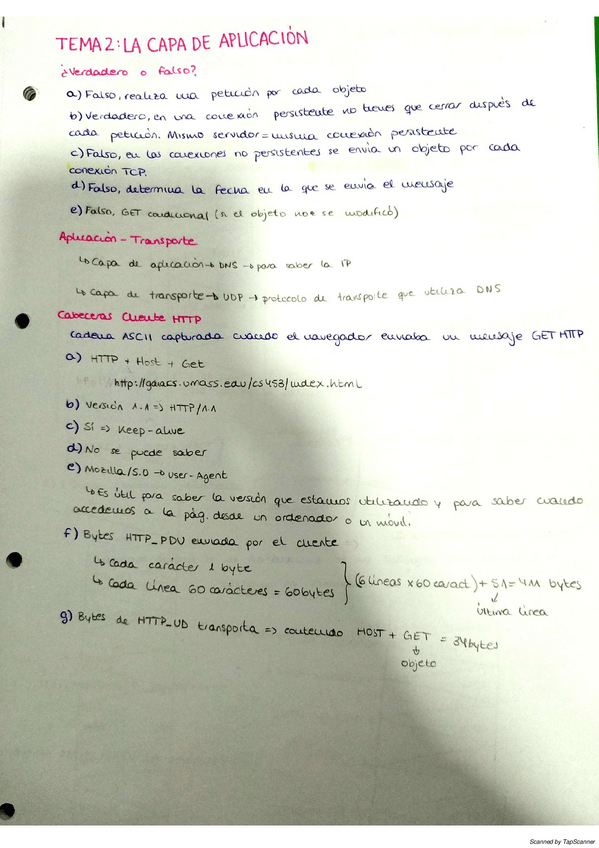 TEMA 2: LA CAPA DE APLICACIÓN
¿Verdadero o falso?
a) Falso, realiza una petición por cada objeto
b) Verdadero, en una conexión persistente no tienes que cerrar después de
cada petición. Mismo servidor = misma conexión persistente
c) Falso, en las conexiones no persistentes se envía un objeto por cada
conexión TCP.
d) Falso, determina la fecha en la que se envía el mensaje
e) Falso, GET condicional (si el objeto no se modificó)
Aplicación - Transporte
↳ Capa de aplicación → DNS → para saber la IP
↳ Capa de transporte → UDP → protocolo de transporte que utiliza DNS
Cabeceras Cliente HTTP
Cadena ASCII capturada cuando el navegador enviaba un mensaje GET HTTP
a) HTTP + Host + Get
http://gaiacs.umass.edu/cs453/index.html
b) Versión 1.1 => HTTP/1.1
c) Sí => Keep-alive
d) No se puede saber
e) Mozilla/5.0 → User-Agent
↳ Es útil para saber la versión que estamos utilizando y para saber cuando
accedemos a la pág. desde un ordenador o un móvil.
f) Bytes HTTP_PDU enviada por el cliente
↳ Cada carácter 1 byte
↳ Cada línea 60 carácteres = 60 bytes } (6 líneas x 60 caract) + 51 = 411 bytes
última línea
g) Bytes de HTTP_UD transporta => contenido HOST + GET = 34 bytes
objeto
Scanned by TapScanner